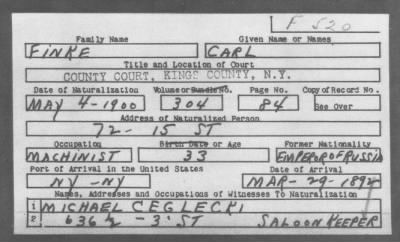 F 520
Family Name Given Name or Names
FINKE CARL
Title and Location of Court
COUNTY COURT, KINGS COUNTY, N.Y.
Date of Naturalization Volume or Bundle No. Page No. Copy of Record No.
MAY 4-1900 304 84 See Over
Address of Naturalized Person
72- 15 ST
Occupation Birth Date or Age Former Nationality
MACHINIST 33 EMPEROR OF RUSSIA
Port of Arrival in the United States Date of Arrival
NY-NY MAR-29-1892
Names, Addresses and Occupations of Witnesses To Naturalization
1 MICHAEL CEGLECKI
2 636½ - 3 ST SALOON KEEPER